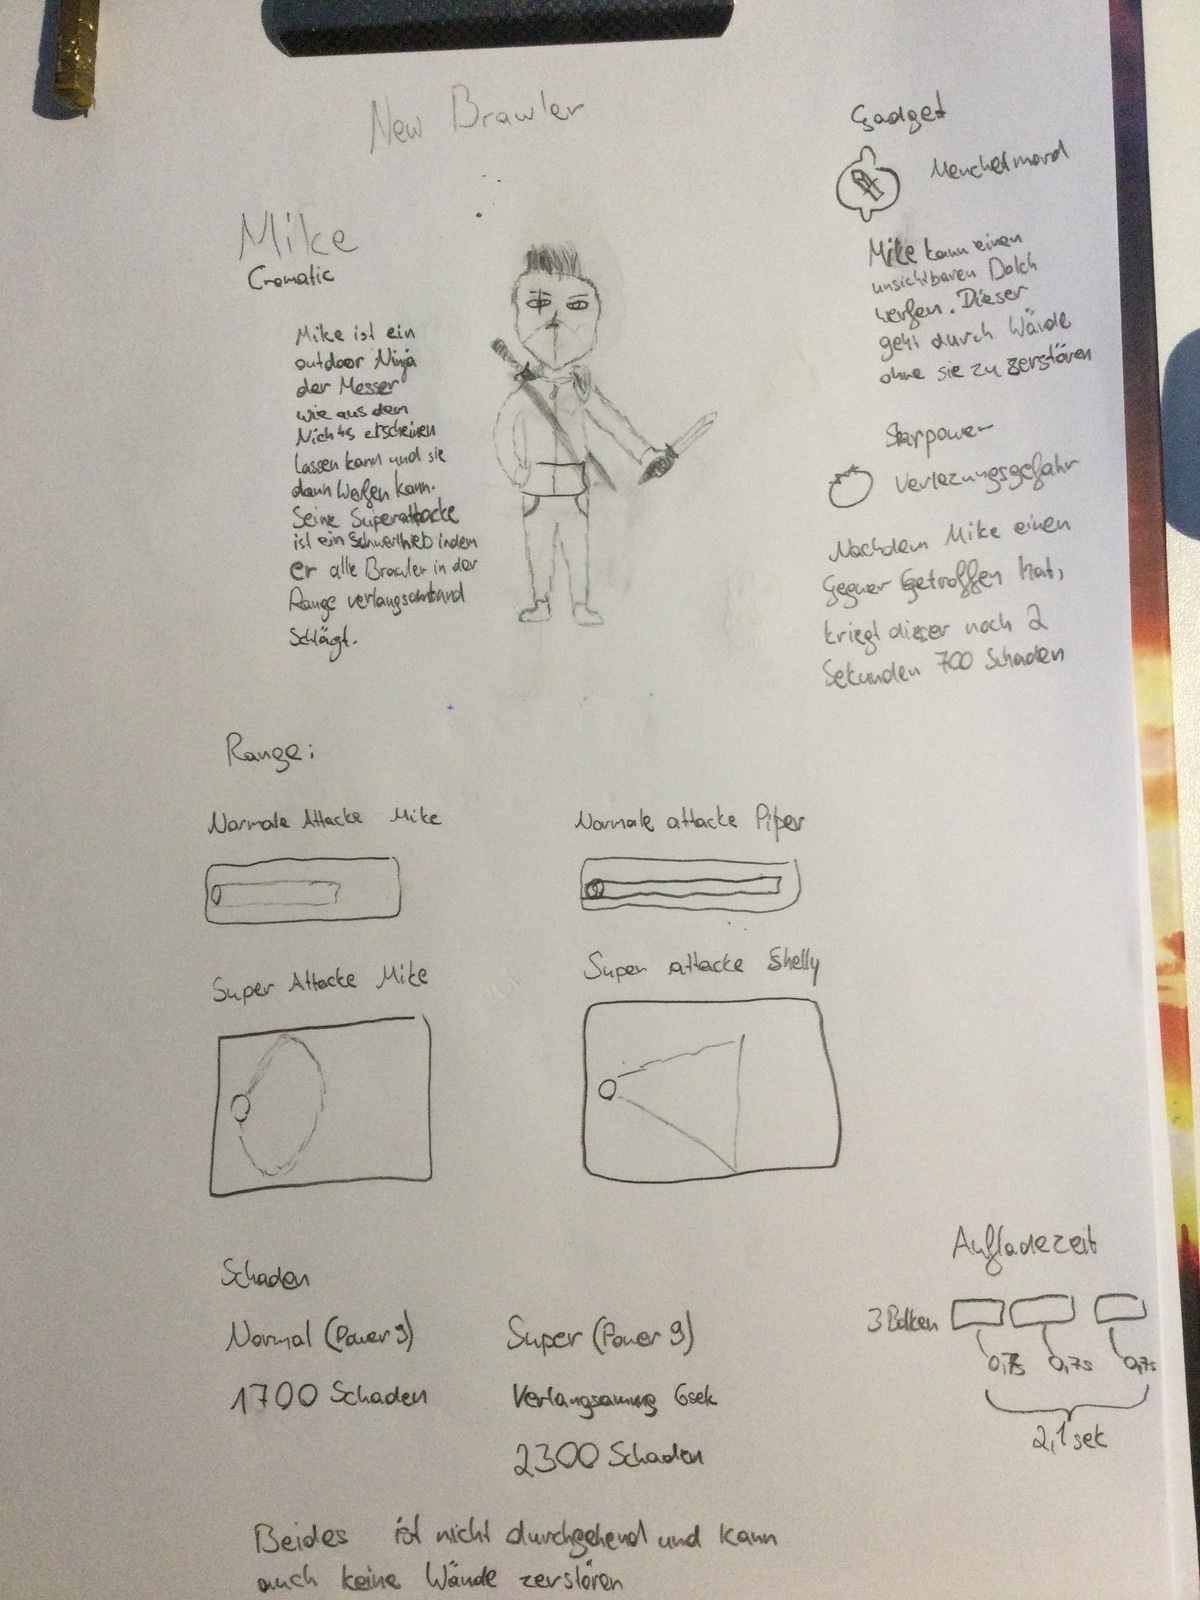 New Brawler
Mike
Cromatic
Mike ist ein
outdoor Ninja
der Messer
wie aus dem
Nichts erscheinen
lassen kann und sie
dann werfen kann.
Seine Superattacke
ist ein Schwerthieb indem
er alle Brawler in der
Range verlangsamt und
Schlägt.
Gadget
Meuchelmord
Mike kann einen
unsichtbaren Dolch
werfen. Dieser
geht durch Wände
ohne sie zu zerstören
Starpower
Verlezungsgefahr
Nachdem Mike einen
Gegner Getroffen hat,
kriegt dieser noch 2
Sekunden 700 Schaden
Range:
Normale Attacke Mike
Normale attacke Piper
Super Attacke Mike
Super attacke Shelly
Schaden
Normal (Power 9)
1700 Schaden
Super (Power 9)
Verlangsamung 6sek
2300 Schaden
Aufladezeit
3 Balken
0,7s 0,7s 0,7s
2,1 sek
Beides ist nicht durchgehend und kann
auch keine Wände zerstören